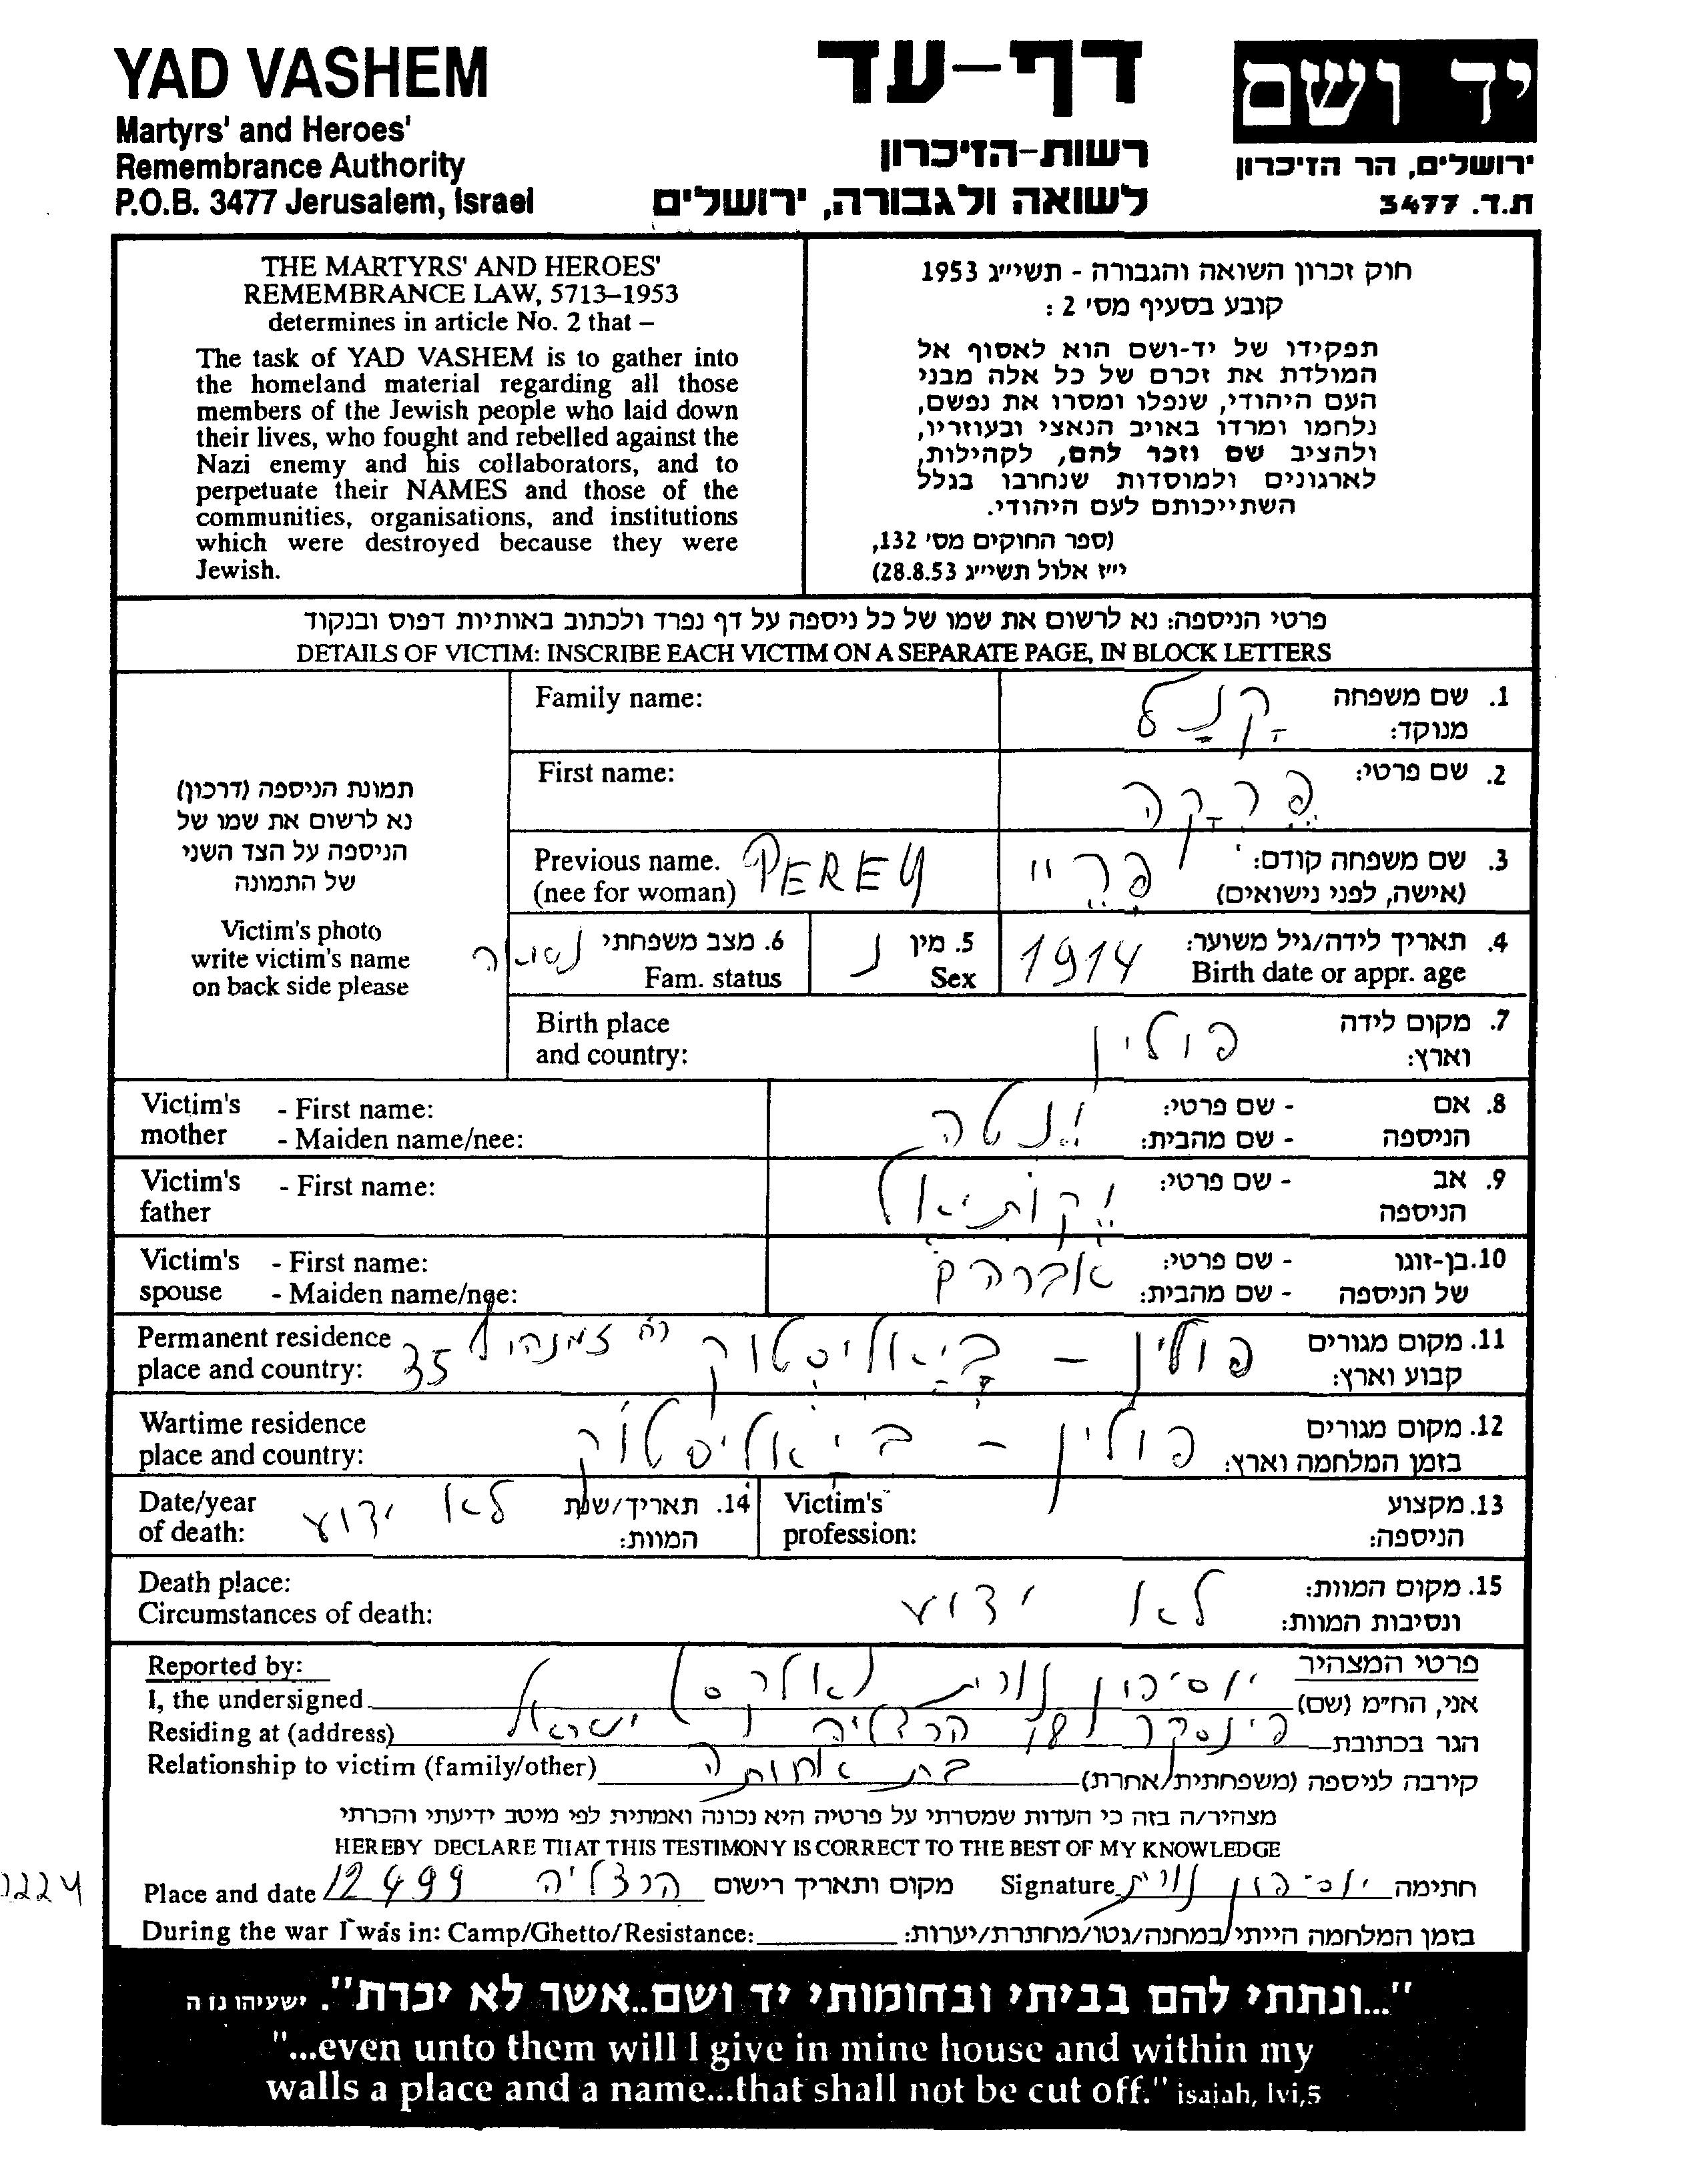 YAD VASHEM
Martyrs' and Heroes'
Remembrance Authority
P.O.B. 3477 Jerusalem, Israel
דף-עד
רשות-הזיכרון
לשואה ולגבורה, ירושלים
יד ושם
ירושלים, הר הזיכרון
ת.ד. 3477
THE MARTYRS' AND HEROES'
REMEMBRANCE LAW, 5713–1953
determines in article No. 2 that –
The task of YAD VASHEM is to gather into
the homeland material regarding all those
members of the Jewish people who laid down
their lives, who fought and rebelled against the
Nazi enemy and his collaborators, and to
perpetuate their NAMES and those of the
communities, organisations, and institutions
which were destroyed because they were
Jewish.
חוק זכרון השואה והגבורה - תשי״ג 1953
קובע בסעיף מס' 2 :
תפקידו של יד-ושם הוא לאסוף אל
המולדת את זכרם של כל אלה מבני
העם היהודי, שנפלו ומסרו את נפשם,
נלחמו ומרדו באויב הנאצי ובעוזריו,
ולהציב שם וזכר להם, לקהילות,
לארגונים ולמוסדות שנחרבו בגלל
השתייכותם לעם היהודי.
(ספר החוקים מס' 132,
י״ז אלול תשי״ג 28.8.53)
פרטי הניספה: נא לרשום את שמו של כל ניספה על דף נפרד ולכתוב באותיות דפוס ובנקוד
DETAILS OF VICTIM: INSCRIBE EACH VICTIM ON A SEPARATE PAGE, IN BLOCK LETTERS
תמונת הניספה (דרכון)
נא לרשום את שמו של
הניספה על הצד השני
של התמונה
Victim's photo
write victim's name
on back side please
Family name:
1. שם משפחה
מנוקד:
First name:
2. שם פרטי:
Previous name. PEREY
(nee for woman)
3. שם משפחה קודם: פריי
(אישה, לפני נישואים)
4. תאריך לידה/גיל משוער: 1914
Birth date or appr. age
5. מין נ
Sex
6. מצב משפחתי נשואה
Fam. status
Birth place
and country:
7. מקום לידה
וארץ: פולין
Victim's - First name:
mother - Maiden name/nee:
8. אם - שם פרטי: ינטה
הניספה - שם מהבית:
Victim's - First name:
father
9. אב - שם פרטי: יקותיאל
הניספה
Victim's - First name:
spouse - Maiden name/nee:
10. בן-זוגו - שם פרטי: אברהם
של הניספה - שם מהבית:
Permanent residence
place and country:
11. מקום מגורים
קבוע וארץ: פולין - ביאליסטוק רח' 35
Wartime residence
place and country:
12. מקום מגורים
בזמן המלחמה וארץ: פולין - ביאליסטוק
Date/year
of death:
14. תאריך/שנת לא ידוע
המוות:
Victim's
profession:
13. מקצוע
הניספה:
Death place:
Circumstances of death:
15. מקום המוות: לא ידוע
ונסיבות המוות:
Reported by:
פרטי המצהיר
I, the undersigned
אני, הח״מ (שם) יוסיפון נורית
Residing at (address)
הגר בכתובת פינסקר הרצליה ישראל
Relationship to victim (family/other)
קירבה לניספה (משפחתית/אחרת) בת אחותה
מצהיר/ה בזה כי העדות שמסרתי על פרטיה היא נכונה ואמתית לפי מיטב ידיעתי והכרתי
HEREBY DECLARE THAT THIS TESTIMONY IS CORRECT TO THE BEST OF MY KNOWLEDGE
Place and date 12 4 99 הרצליה מקום ותאריך רישום
Signature יוסיפון נורית חתימה
During the war I was in: Camp/Ghetto/Resistance:
בזמן המלחמה הייתי במחנה/גטו/מחתרת/יערות:
"...ונתתי להם בביתי ובחומותי יד ושם..אשר לא יכרת". ישעיהו נו ה
"...even unto them will I give in mine house and within my
walls a place and a name...that shall not be cut off." isaiah, lvi,5